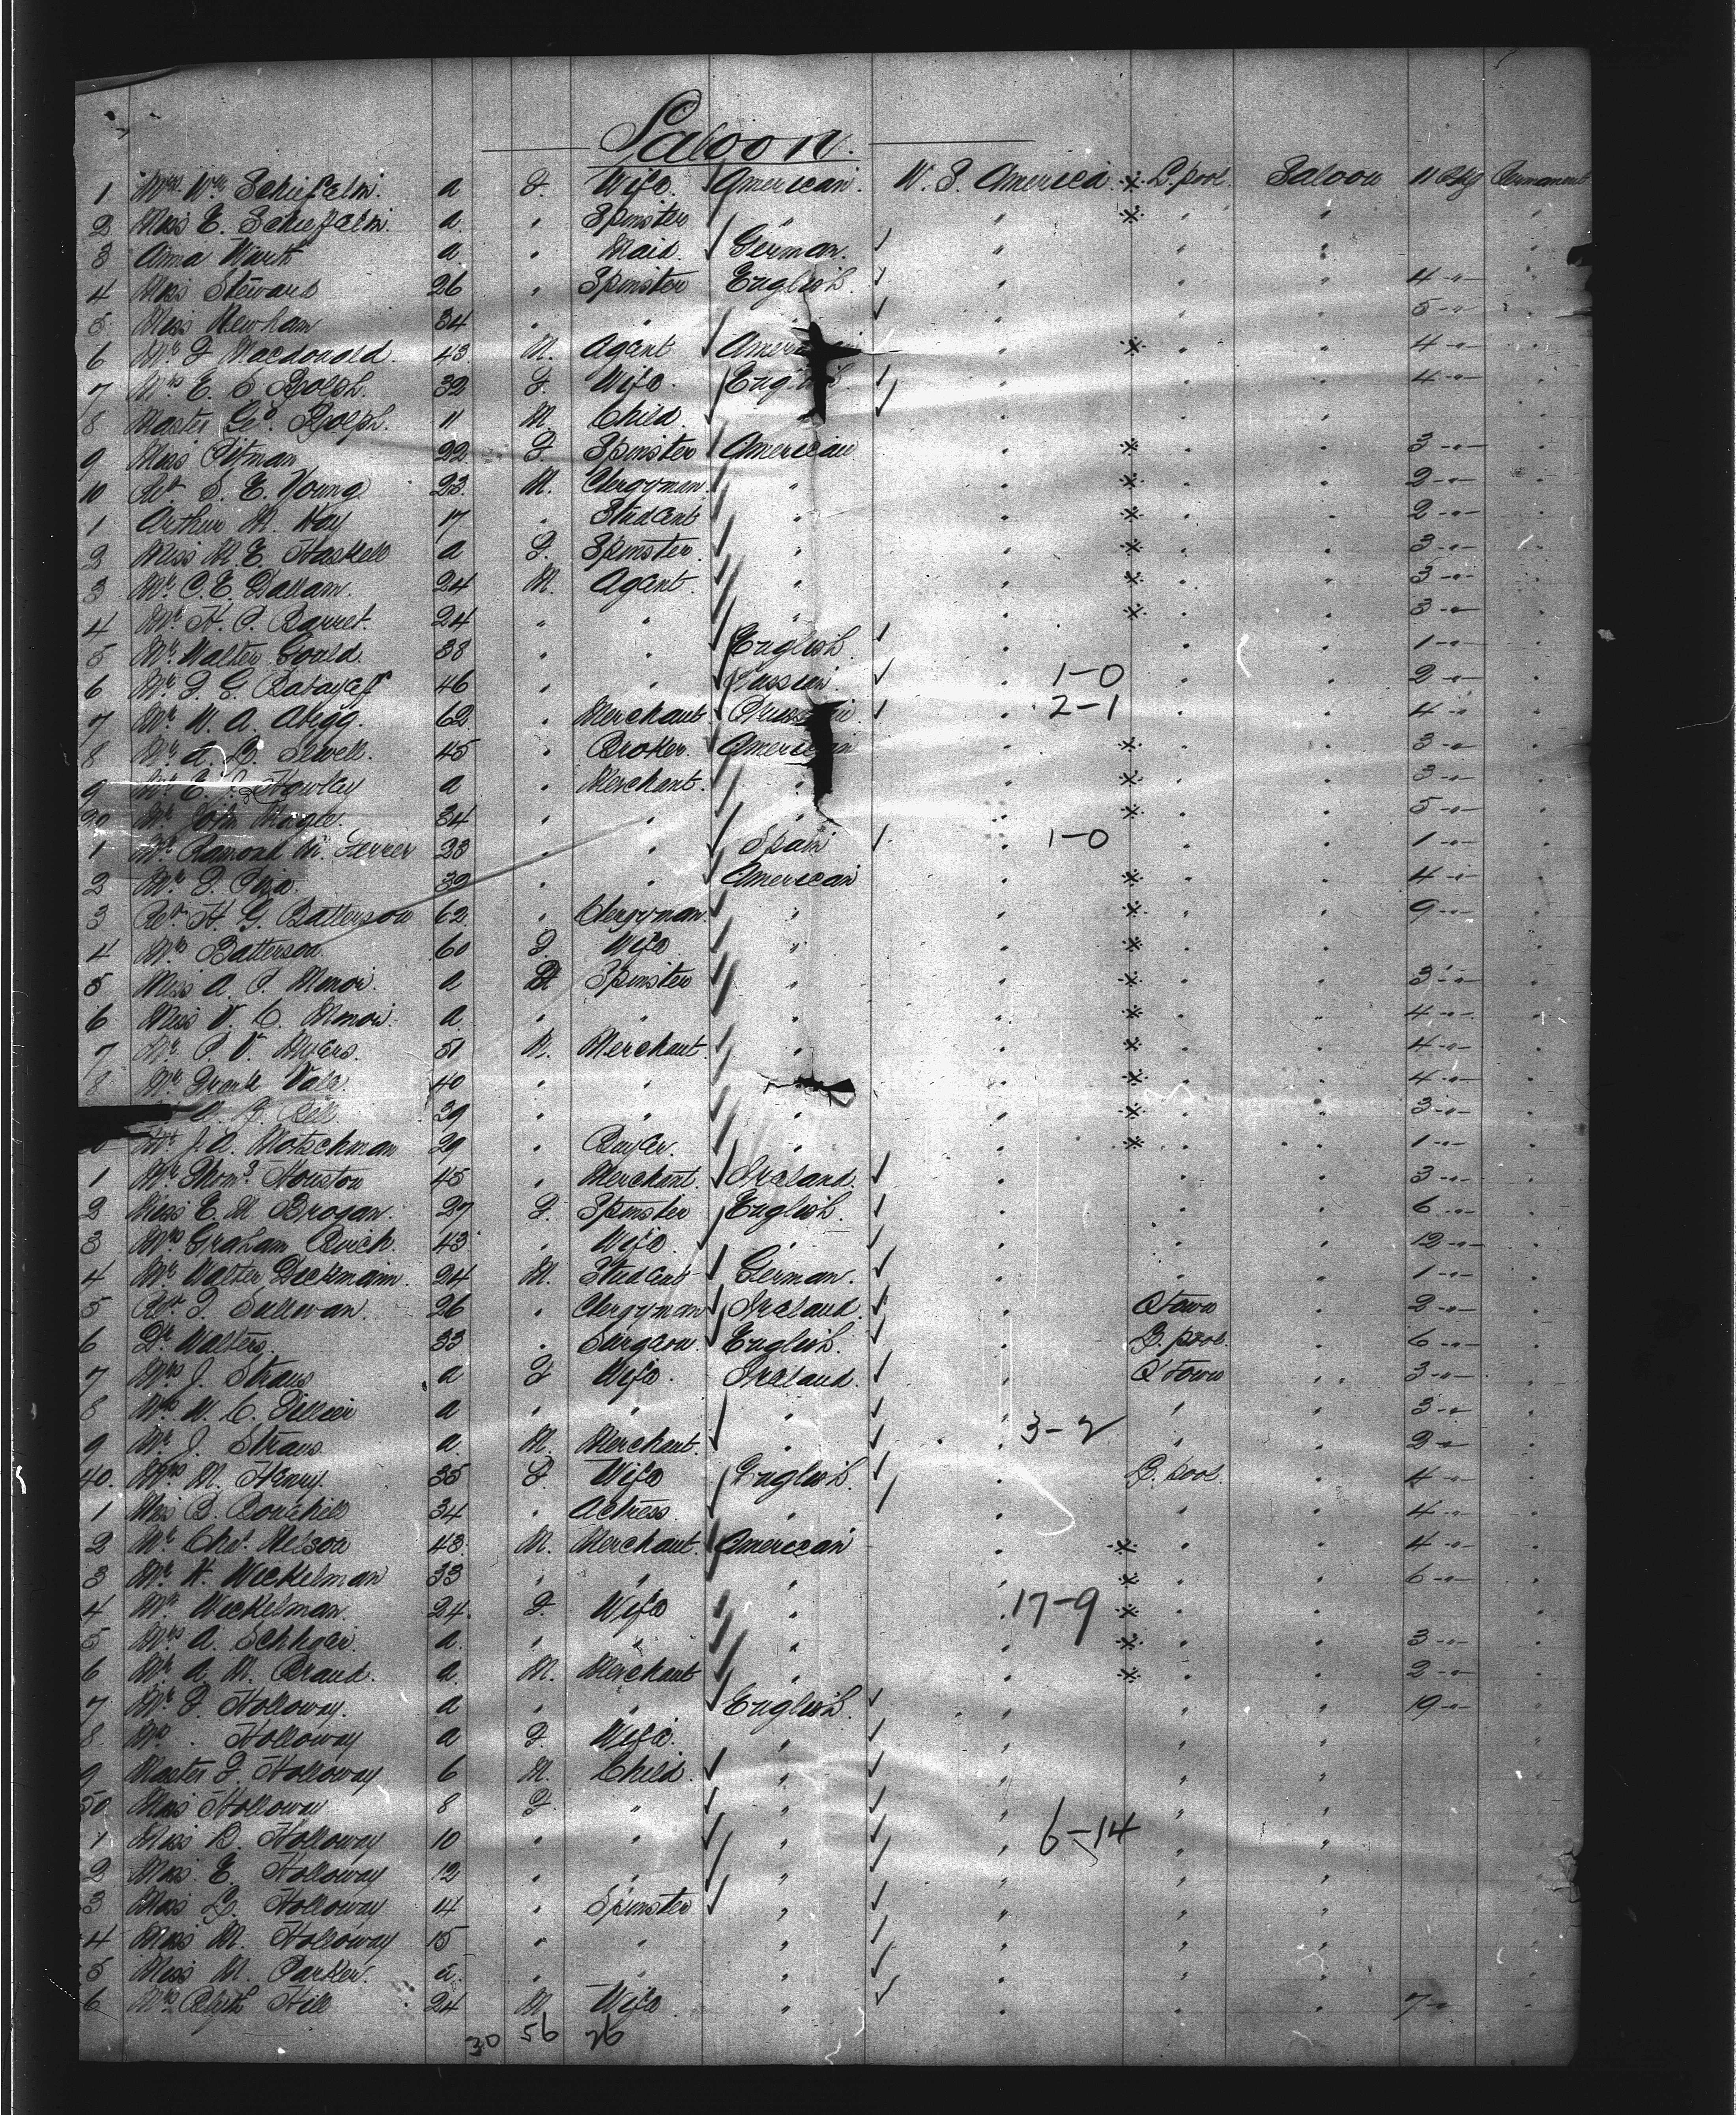 Saloon.
1 Mrs. Wm. Schiefelin. a F. Wife. American. U. S. America L.pool. Saloon 11 Pkg Permanent
2 Miss E. Schiefelin. a. " Spinster " " " "
3 Anna Warth a. " Maid. German. " " "
4 Miss Steward 26 " Spinster English. " " " 4 - " -
5 Miss Newham 34 " " " " " " 5 - " -
6 Mr. F Macdonald. 43 M. Agent American " " " 4 - " -
7 Mrs E. S. Rolph. 32 F. Wife. English. " " " 4 - " -
8 Master Geo. Rolph. 11 M. Child. " " " "
9 Miss Pitman 22 F. Spinster American " " " 3 - " -
10 Revd S. E. Young 23. M. Clergyman. " " " " 2 - " -
1 Arthur M. Hay 17 " Student " " " " 2 - " -
2 Miss M. E. Haskell a F. Spinster. " " " " 3 - " -
3 Mr. C. E. Dallam. 24 M. Agent. " " " " 3 - " -
4 Mr. H. P. Barret. 24 " " " " " " 3 - " -
5 Mr. Walter Gould. 38 " " English. " " " 1 - " -
6 Mr. 46 " " Russian. " 1-0 " " 2 - " -
7 Mr. 62 " Merchant " 2-1 " " 4 - " -
8 Mr. A. B. Sewell. 45 " Broker. American " " " 3 - " -
9 Mr. E. Howley a " Merchant. " " " " 3 - " -
20 Mr. John Nagle. 34 " " " " " " 5 - " -
1 Mr. Ramont M. Ferrer 23 " " Spain " 1-0 " " 1 - " -
2 Mr. 32 " " American " " " 4 - " -
3 Revd H. G. Batterson 62. " Clergyman. " " " " 9 - " -
4 Mrs Batterson. 60 F. Wife. " " " "
5 Miss A. P. a Spinster " " " " 3 - " -
6 Miss V. C. a. " " " " " " 4 - " -
7 Mr. P. V. Myers. 51 M. Merchant. " " " " 4 - " -
8 Mr. Frank Vale. 40 " " " " " " 4 - " -
39 " " " " " " 3 - " -
Mr. J. A. Motschman 29 " Buyer. " " " " 1 - " -
1 Mr. Thoms. Houston 45 " Merchant. Ireland. " " " 3 - " -
2 Miss E. M. Brogan. 27 F. Spinster English. " " " 6 - " -
3 Mrs. Graham 43 " Wife. " " " " 12 - " -
4 Mr. Walter Dieckmann. 24 M. Student German. " " " 1 - " -
5 Revd Sullivan. 26 " Clergyman Ireland. " Q'town " 2 - " -
6 Dr. Walters. 33 " Surgeon. English. " L.pool. " 6 - " -
7 Mrs J. Straus a F Wife. Ireland. " Q'town " 3 - " -
8 Mrs a " " " " " " 3 - " -
9 Mr J. Straus a. M. Merchant. " " 3-2 " " 2 - " -
40. Mrs M. Henry. 35 F. Wife English. " L.pool. " 4 - " -
1 Miss B. 34 " Actress. " " " " 4 - " -
2 Mr. Chas. Nelson 43. M. Merchant. American " " " 4 - " -
3 Mr. Weckelman 33 " " " " " " 6 - " -
4 Mrs Weckelman. 24. F. Wife " 17-9 " "
5 Mrs. A. a. " " " " " " 3 - " -
6 Mr. A. M. a. M. Merchant " " " " 2 - " -
7 Mr. Holloway. a " " English. " " " 19 - " -
8. Mrs. Holloway a F. Wife. " " " "
9 Master F. Holloway 6 M. Child. " " " "
50 Miss Holloway 8 F. " " " " "
1 Miss B. Holloway 10 " " " " 6-14 " "
2 Miss E. Holloway 12 " " " " " "
3 Miss L. Holloway 14 " Spinster " " " "
4 Miss M. Holloway 15 " " " " " "
5 Miss M. Parker. a. " " " " " "
6 Mrs Hill 24 M Wife. " " " " 7 - "
30 56 26